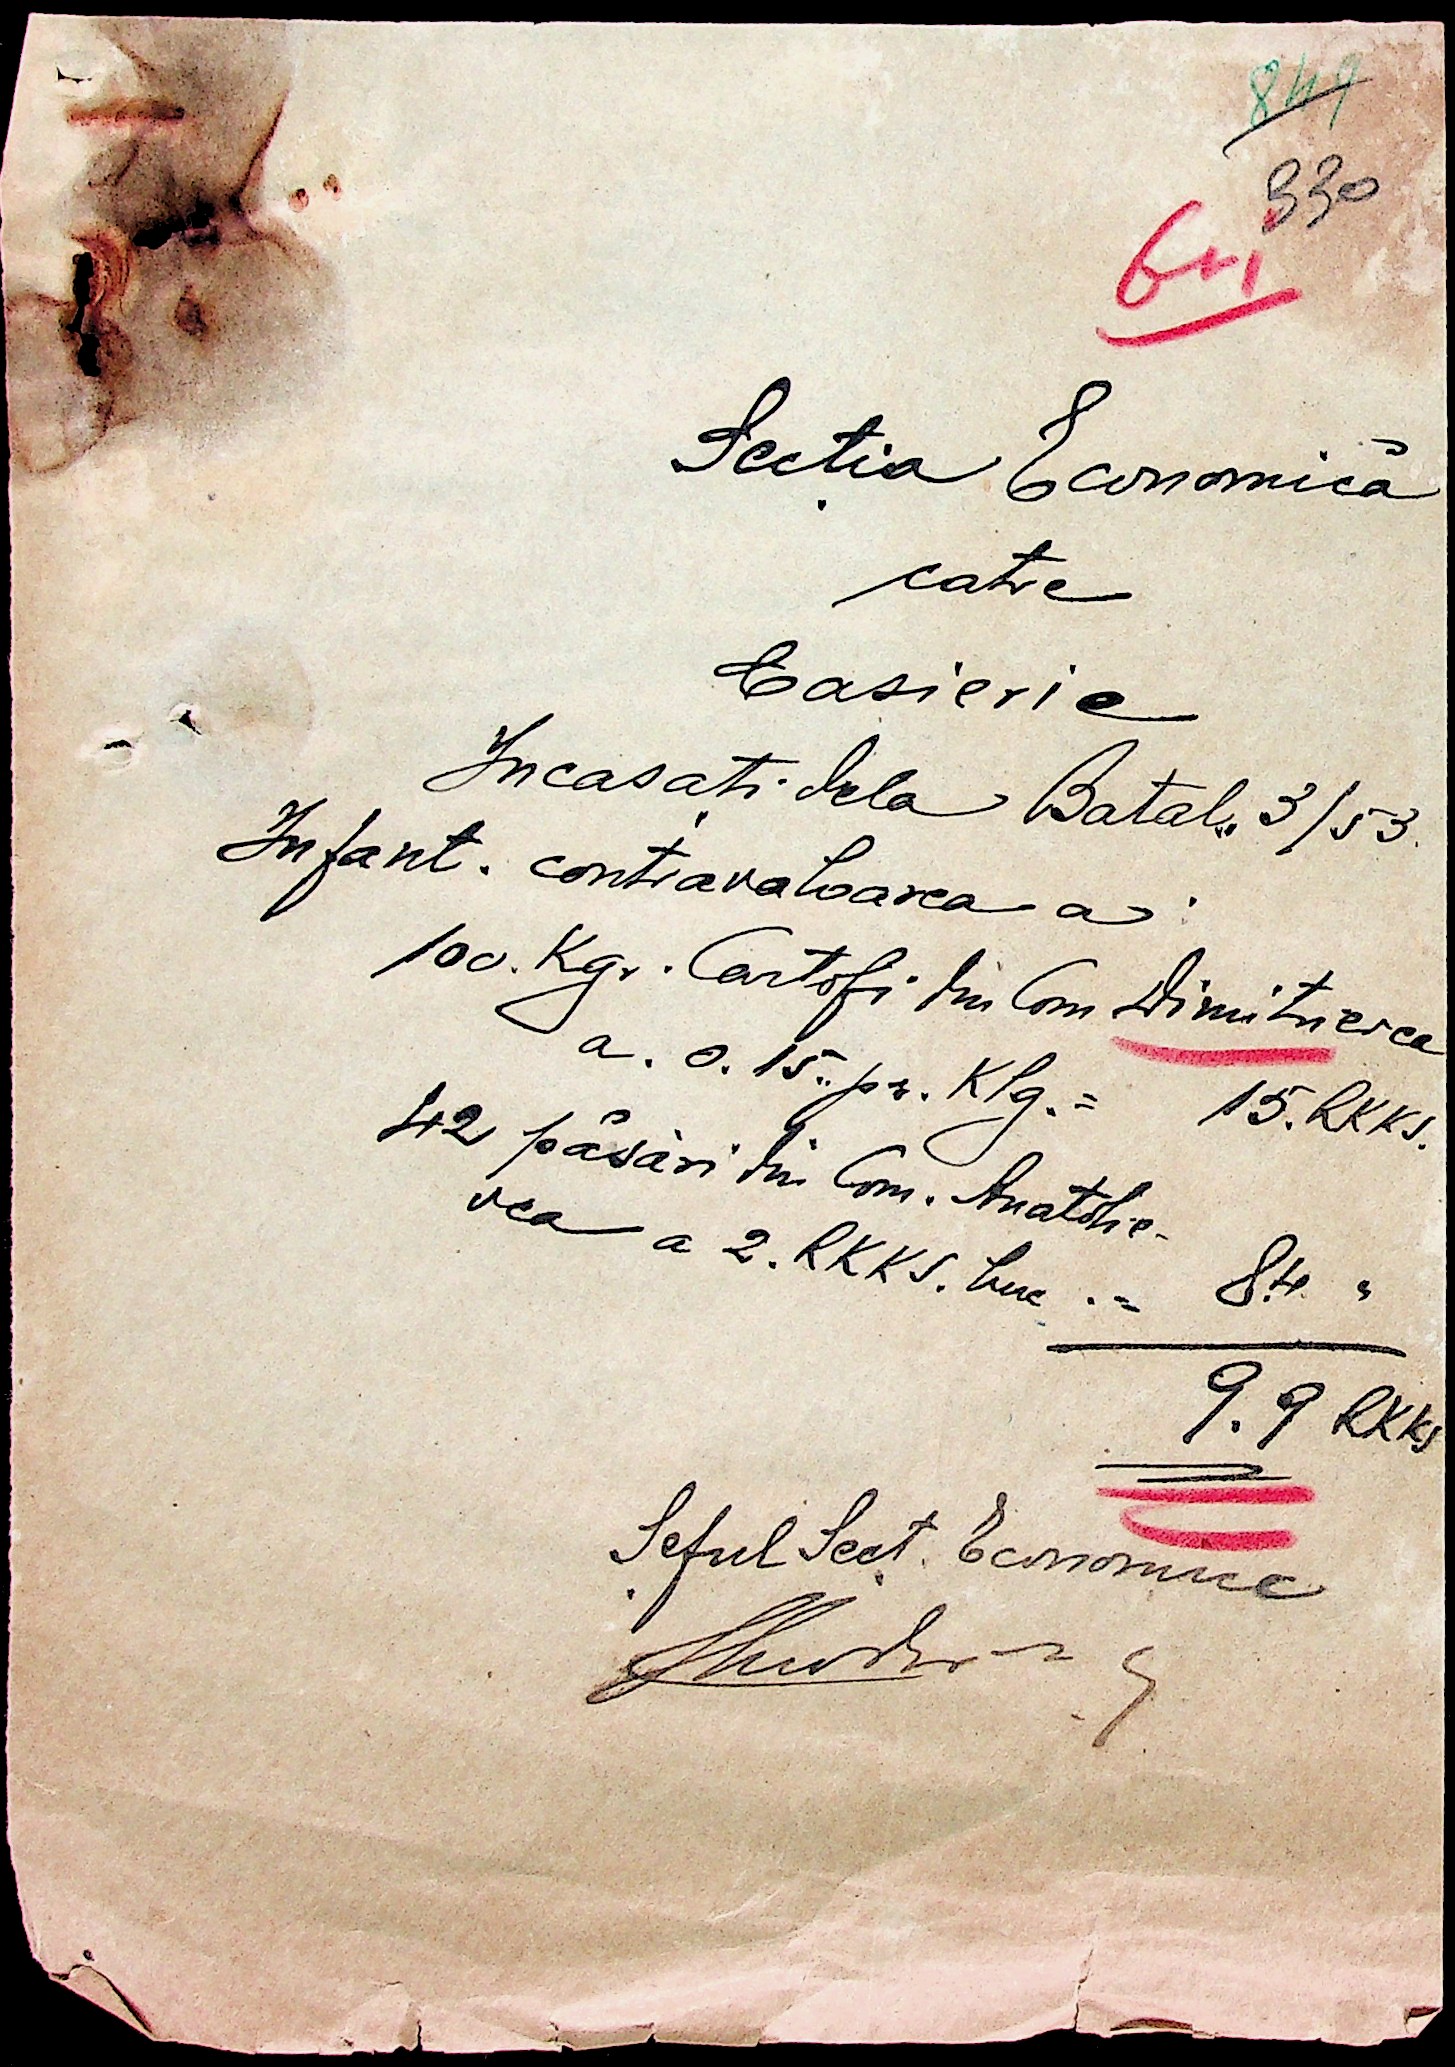 849
330
Secția Economică
catre
Casierie
Incasați dela Batal. 3/53.
Infant. contravaloarea a:
100. Kgr. Cartofi din Com Dimitrievca
a. 0.15. pr. Klg. = 15. RKKS.
42 păsări din Com. Anatolie-
vca a 2. RKKS. buc. = 84 "
9.9 RKKS
Șeful Secț. Economice